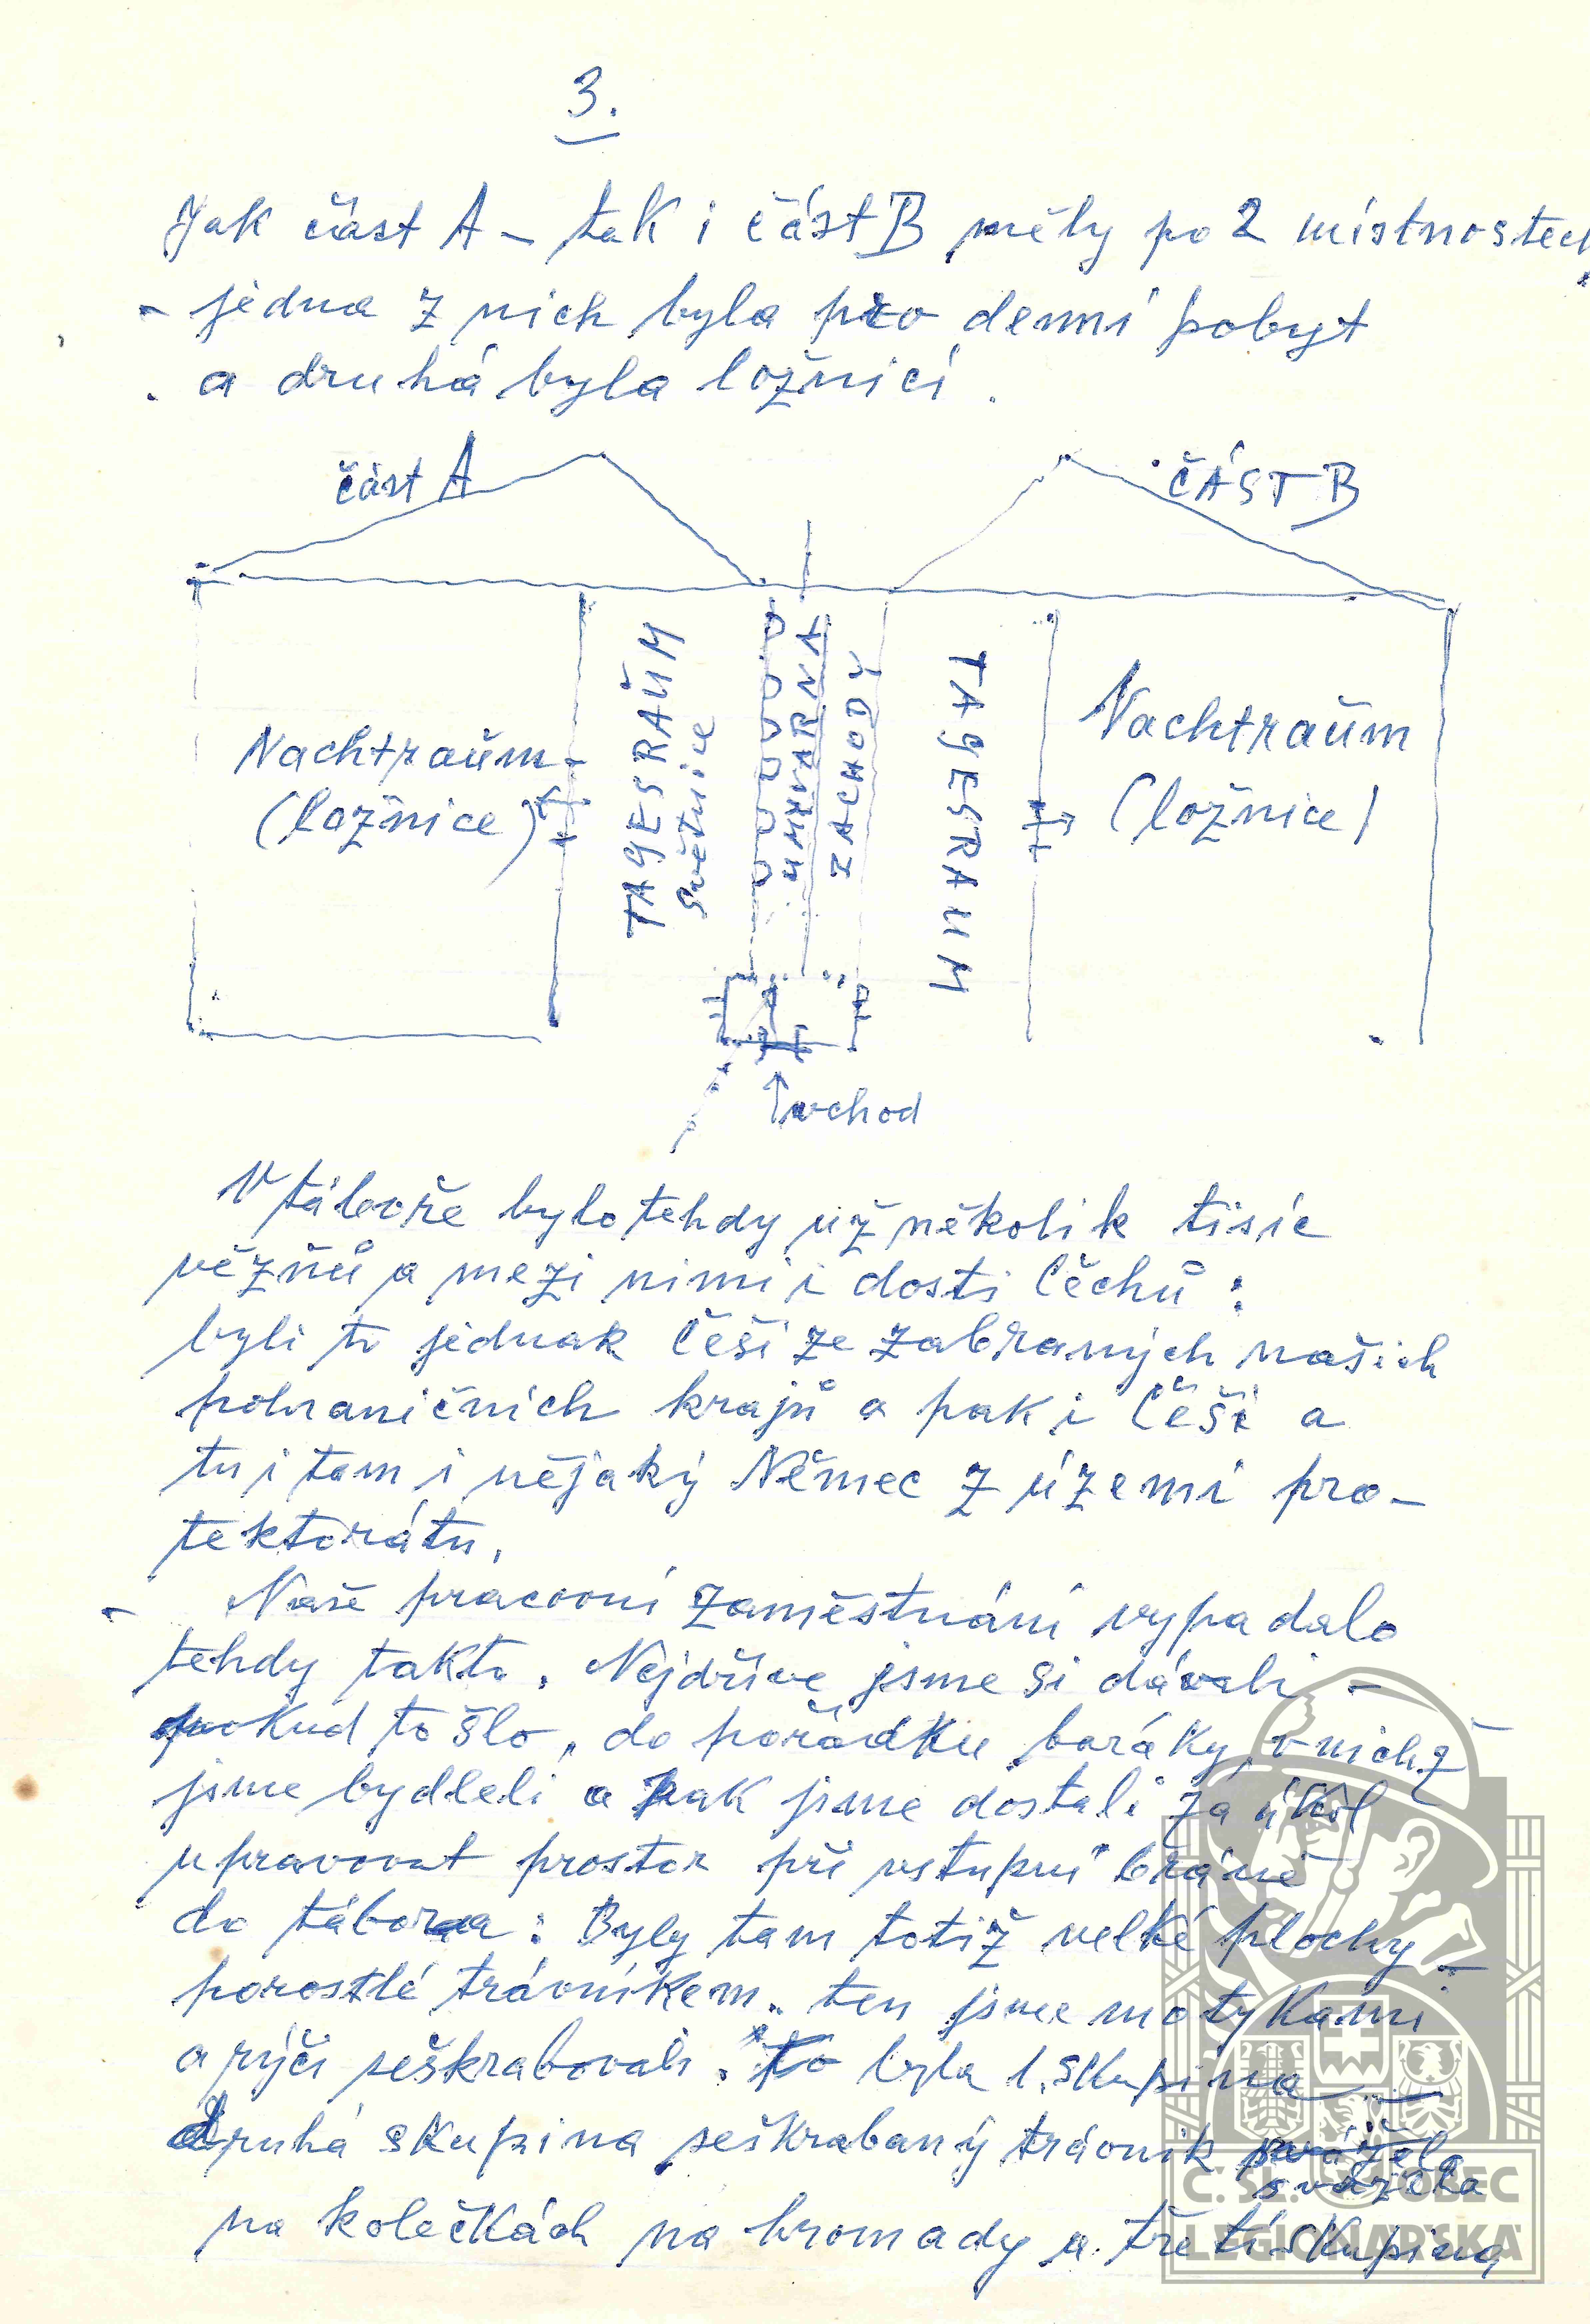 3.
Jak část A – tak i část B měly po 2 místnostech
- jedna z nich byla pro denní pobyt
a druhá byla ložnicí.
část A
ČÁST B
Nachtraŭm
(ložnice)
TAGESRAŬM
světnice
UMÝVARNA
ZÁCHODY
TAGESRAUM
Nachtraŭm
(ložnice)
vchod
V táboře bylo tehdy už několik tisíc
vězňů a mezi nimi i dosti Čechů:
byli to jednak Češi ze zabraných našich
pohraničních krajů a pak i Češi a
tu i tam i nějaký Němec z území pro-
tektorátu.
Naše pracovní zaměstnání vypadalo
tehdy takto. Nejdříve jsme si dávali -
pokud to šlo, do pořádku baráky, v nichž
jsme bydleli a pak jsme dostali za úkol
upravovat prostor při vstupní bráně
do tábora: Byly tam totiž velké plochy -
porostlé trávníkem. ten jsme motykami
a rýči seškrabovali. To byla 1. skupina -
druhá skupina seškrabaný trávník
svážela
na kolečkách na hromady a třetí skupina
Č. SL. OBEC
LEGIONÁŘSKÁ